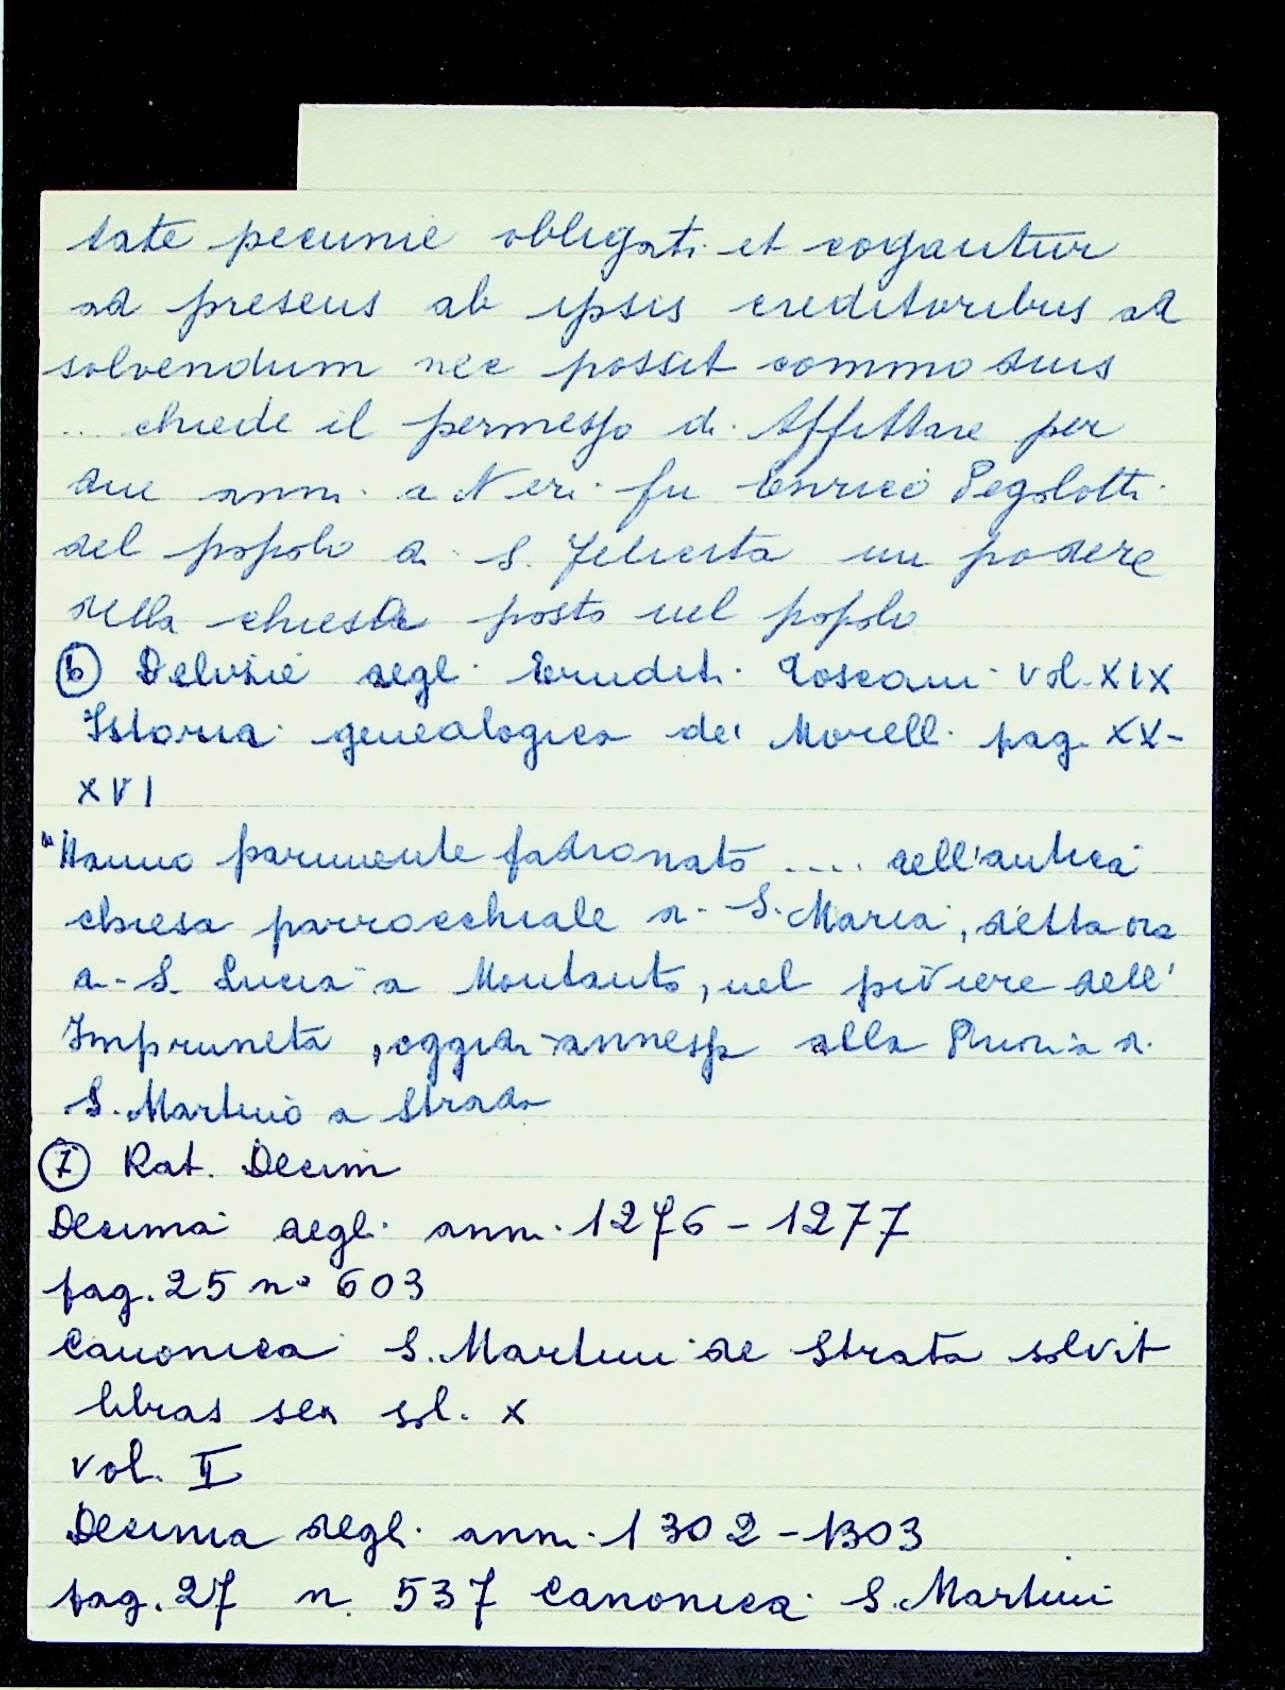 tate pecunie obligati et cogantur
ad presens ab ipsis creditoribus ad
solvendum nec possit commodius
... chiede il permesso di affittare per
due anni a Neri fu Enrico Pegolotti
del popolo di S. Felicita un podere
della chiesa posto nel popolo
⑥ Delizie degli Eruditi Toscani vol. XIX
Istoria genealogica dei Morelli pag. XX-
XVI
"Hanno parimente padronato .... dell'antica
chiesa parrocchiale di S. Maria, detta ora
di S. Lucia a Montauto, nel piviere dell'
Impruneta, oggidi annessa alla Prioria di
S. Martino a Strada
⑦ Rat. Decim
Decima degli anni 1276-1277
pag. 25 n° 603
Canonica S. Martini de Strata solvit
libras sex sol. X
vol. II
Decima degli anni 1302-1303
pag. 27 n. 537 Canonica S. Martini